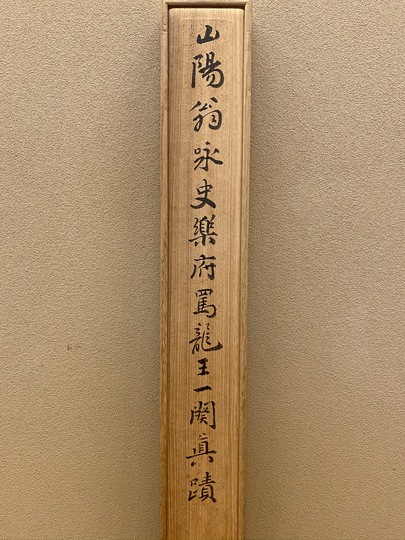 山陽翁咏史樂府罵龍王一闋真蹟